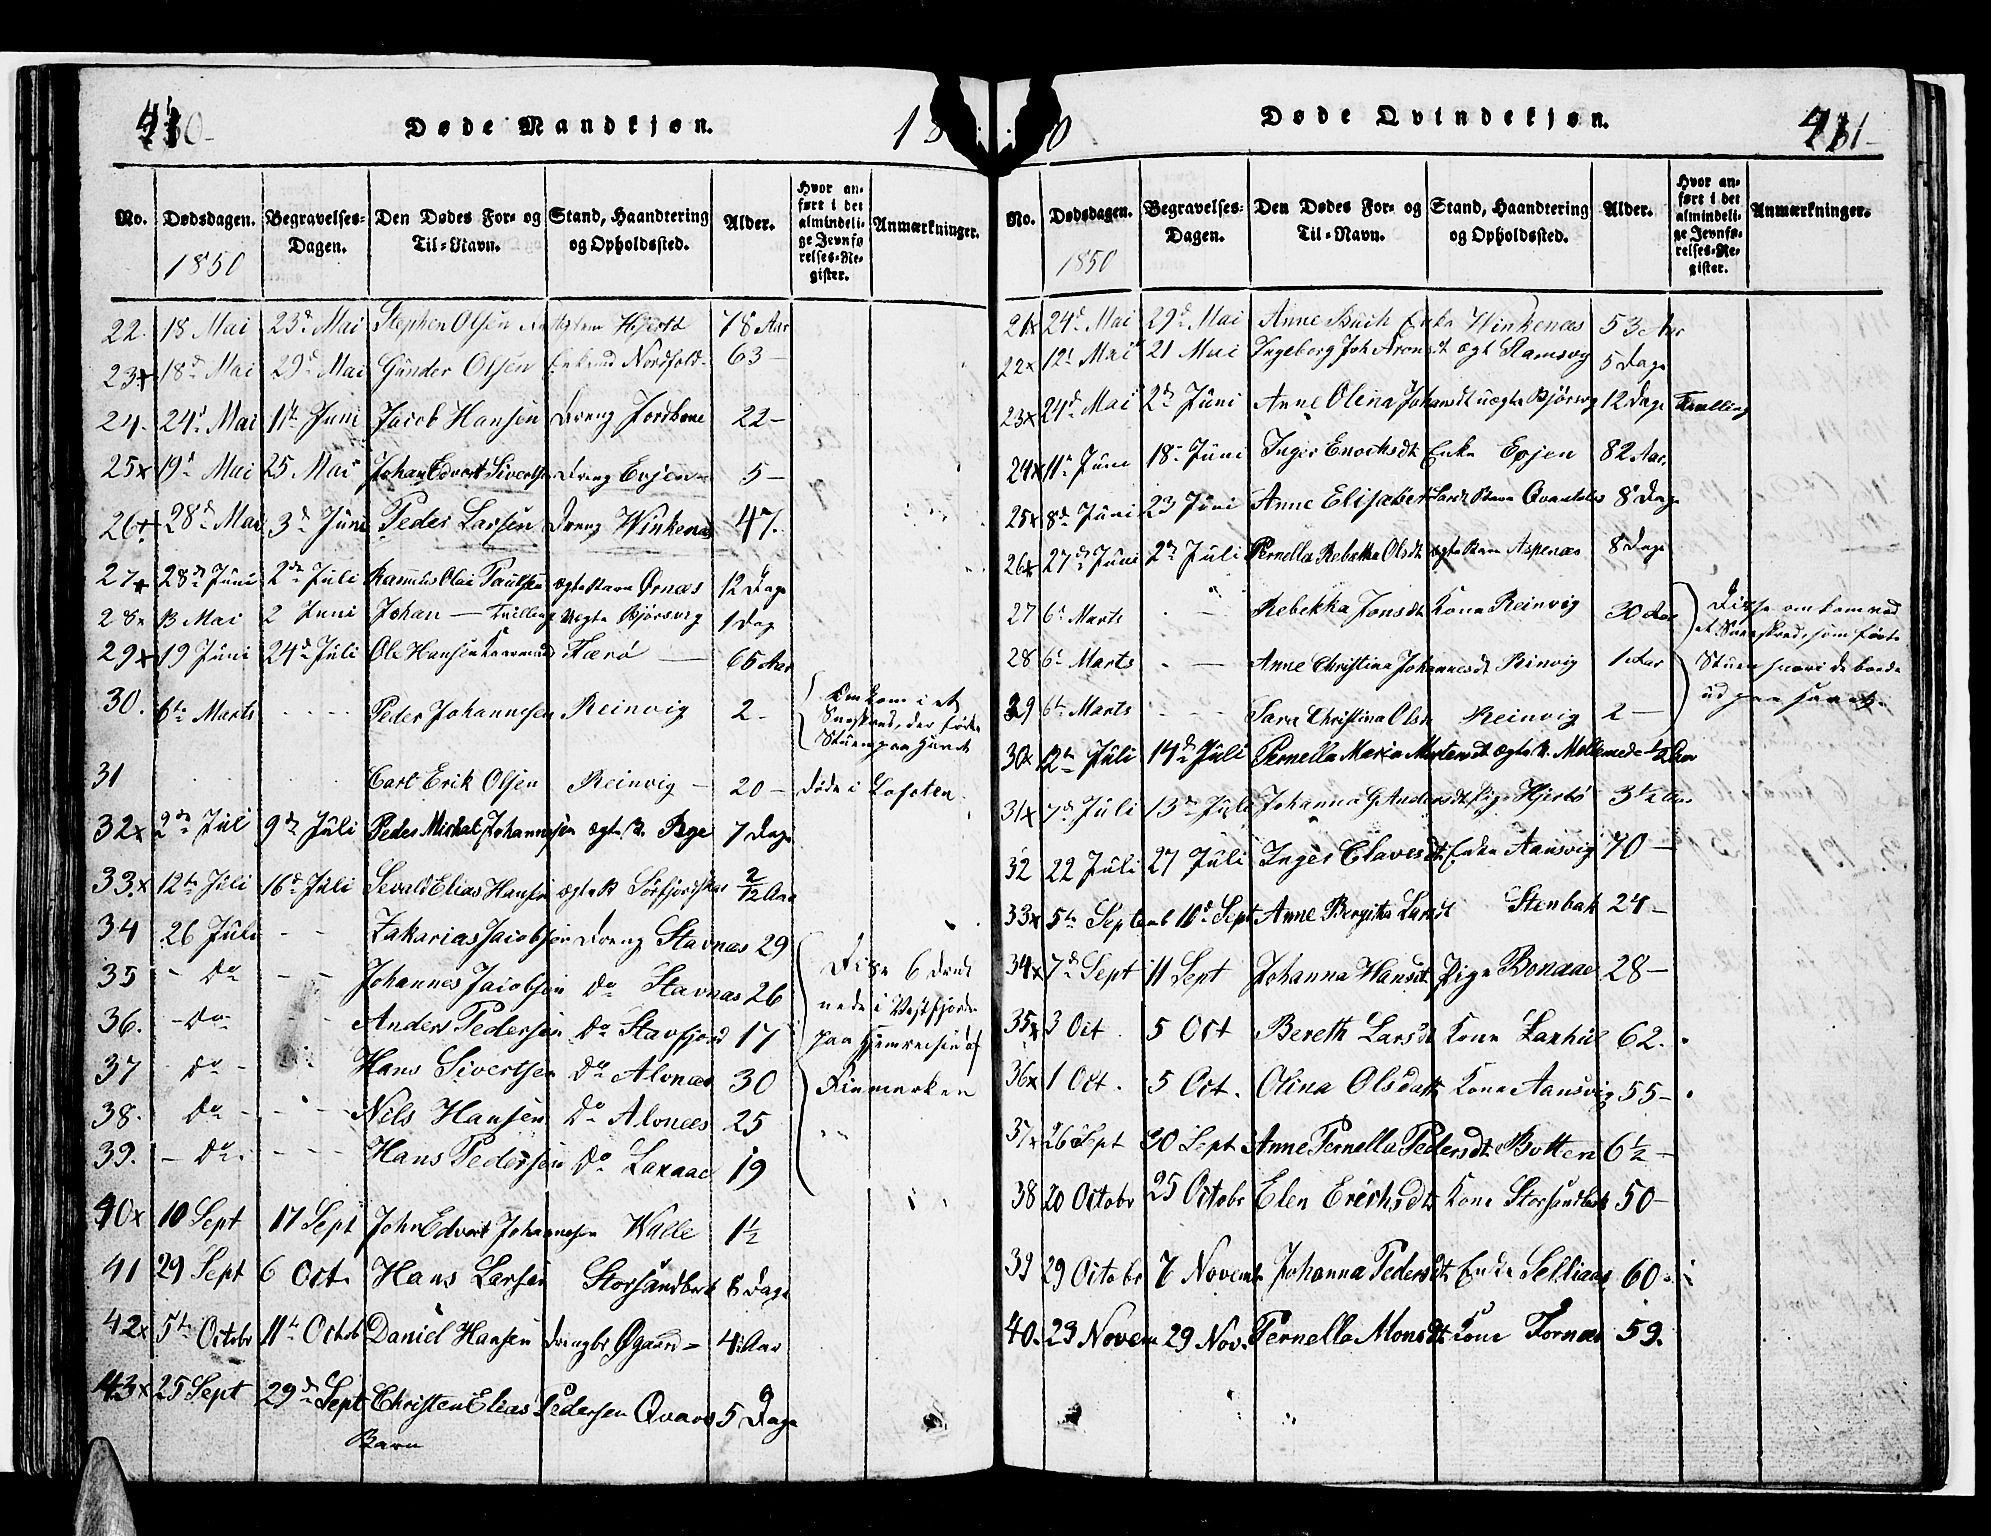 Døde Mandkjøn.
No. Dødsdagen. Begravelses-Dagen. Den Dødes For- og Til-Navn. Stand, Haandtering og Opholdssted. Alder. Hvor anført i det almindelige Jevnførelses-Register. Anmærkninger.
1850
22. 18 Mai 23d Mai Stephen Olsen Hjertø 78 Aar
23x 18d Mai 29d Mai Gunder Olsen Enkemd Nordfold 63 —
24. 24d Mai 11te Juni Jacob Hansen Dreng Jordbroe 22 —
25x 19d Mai 25 Mai Johan Edvert Sivertsen Dreng Evjen 5 —
26+ 28d Mai 3d Juni Peder Larsen Dreng Winkenæs 47.
27+ 28de Juni 2de Juli Rasmus Olai Paulsen ægte Barn Ørnæs 12 Dage
28. 13 Mai 2 Juni Johan — Tvilling Uægte Bjørsvig 1 Dag
29x 19 Juni 24d Juli Ole Hansen Færø — 65 Aar
30. 6te Marts - - - - Peder Johannesen Reinvig 2 - Omkom i et
Sneskred, der førte
Stuen paa Havet
31 Carl Erik Olsen Reinvig — 20 — døde i Lofoten.
32x 2de Juli 9de Juli Peder Mickal Johannesen ægte B. Bge 7 Dage
33.x 12te Juli 16d Juli Sevald Elias Hansen ægte B Sørfjordskar 2/12 Aar
34 26 Juli - - Zakarias Jacobsen Dreng Stavnæs 29
35 - Do - - Johannes Jacobsen Do Stavnæs 26
36. - Do - - Anders Pedersen Do Stavfjord 17
37 Do - Hans Sivertsen Do Alvnæs 30
38. Do - - - Nils Hansen Do Alvnæs 25
39. - Do - - - Hans Pedersen Do Laxaae 19
Disse 6 druk
nede i Vestfjorden
paa Hjemreisen af
Finmarken
40x 10 Sept 17 Sept John Edvart Johannesen Walle 1½
41 29 Sept 6 Oct. Hans Larsen Storsandbak 8 Dage
42x 5te Octobr 11te Octob Daniel Hansen Drengbr Øgaard — 4 Aar
43x 25 Sept 29d Sept Christen Elias Pedersen Qvarv 5 Dage
Barn
Døde Qvindekjøn.
No. Dødsdagen. Begravelses-Dagen. Den Dødes For- og Til-Navn. Stand, Haandtering og Opholdssted. Alder. Hvor anført i det almindelige Jevnførelses-Register. Anmærkninger.
1850
21x 24d Mai 29d Mai Anne Buch Enke Winkenæs 53 Aar
22x 12t Mai 21 Mai Ingeborg Joh Aronsdt ægt Ramsvig 5 Dage
23x 24d Mai 2de Juni Anne Olina Johansdt uægte Bjørsvig 12 Dage Tvilling
24x 11te Juni 18 Juni Inger Enocksdt Enke Evjen 82 Aar
25x 8de Juni 23 Juni Anne Elisabet Larsdt Barn Qvantotes 8 Dage
26x 27de Juni 2de Juli Pernella Rebekka Olsdt ægte Barn Aspenæs 8 Dage
27 6te Marts - — Rebekka Jonsdt Kone Reinvig 30 Aar
28 6te Marts - — Anne Christina Johannesdt Reinvig 1 Aar
29 6te Marts - - - Sara Christina Olsdt Reinvig 2 —
Disse omkom ved
et Sneeskred, som førte
Stuen hvori de boede
ud paa havet.
30x 12te Juli 14d Juli Pernella Maria Mortensdt ægte B. Mollemede
31x 7de Juli 13de Juli Johanna G Andersdt Pige Hjertø 3½ Aar
32 22 Juli 27 Juli Inger Olavesdt Enke Aansvig 70 —
33x 5te Septemb 10d Sept Anne Bergitta Larsdt Stenbak 24 —
34x 7de Sept 11 Sept Johanna Hansdt Pige Bonaae 28 —
35x 3 Oct. 5 Oct Bereth Larsdt Kone Laxhül 62.
36x 1 Oct. 5 Oct. Olina Olsdatt Kone Aansvig 55 —
37x 26 Sept 30 Sept Anne Pernella Pedersdt Botten 6½ —
38 20 Octobr 25 Octobr Elen Erichsdt Kone Storsandbak 50 —
39 29 Octobr 7 Novemb Johanna Pedersdt Enke Selliaas 60
40. 23 Novem 29 Nov. Pernella Monsdt Kone Fornæs 59.